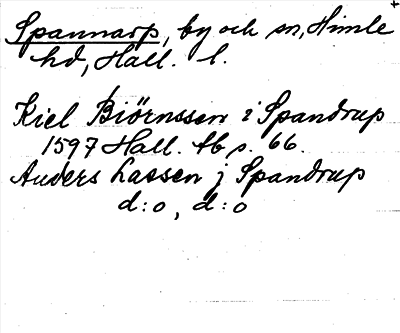 Spannarp, by och sn, Himle
hd, Hall. l.
Kiel Biörnssen i Spandrup
1597 Hall. tb s. 66.
Anders Lassen j Spandrup
d:o, d:o